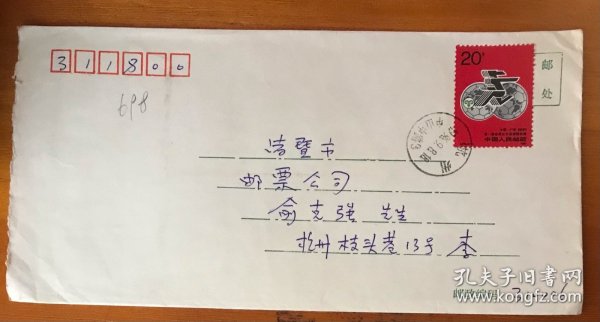 311800
698
20分
邮
处
中国人民邮政
诸暨市
邮票公司
俞克强 先生
杭州 枝头巷13号 李
邮政编码
孔夫子旧书网
www.kongfz.com